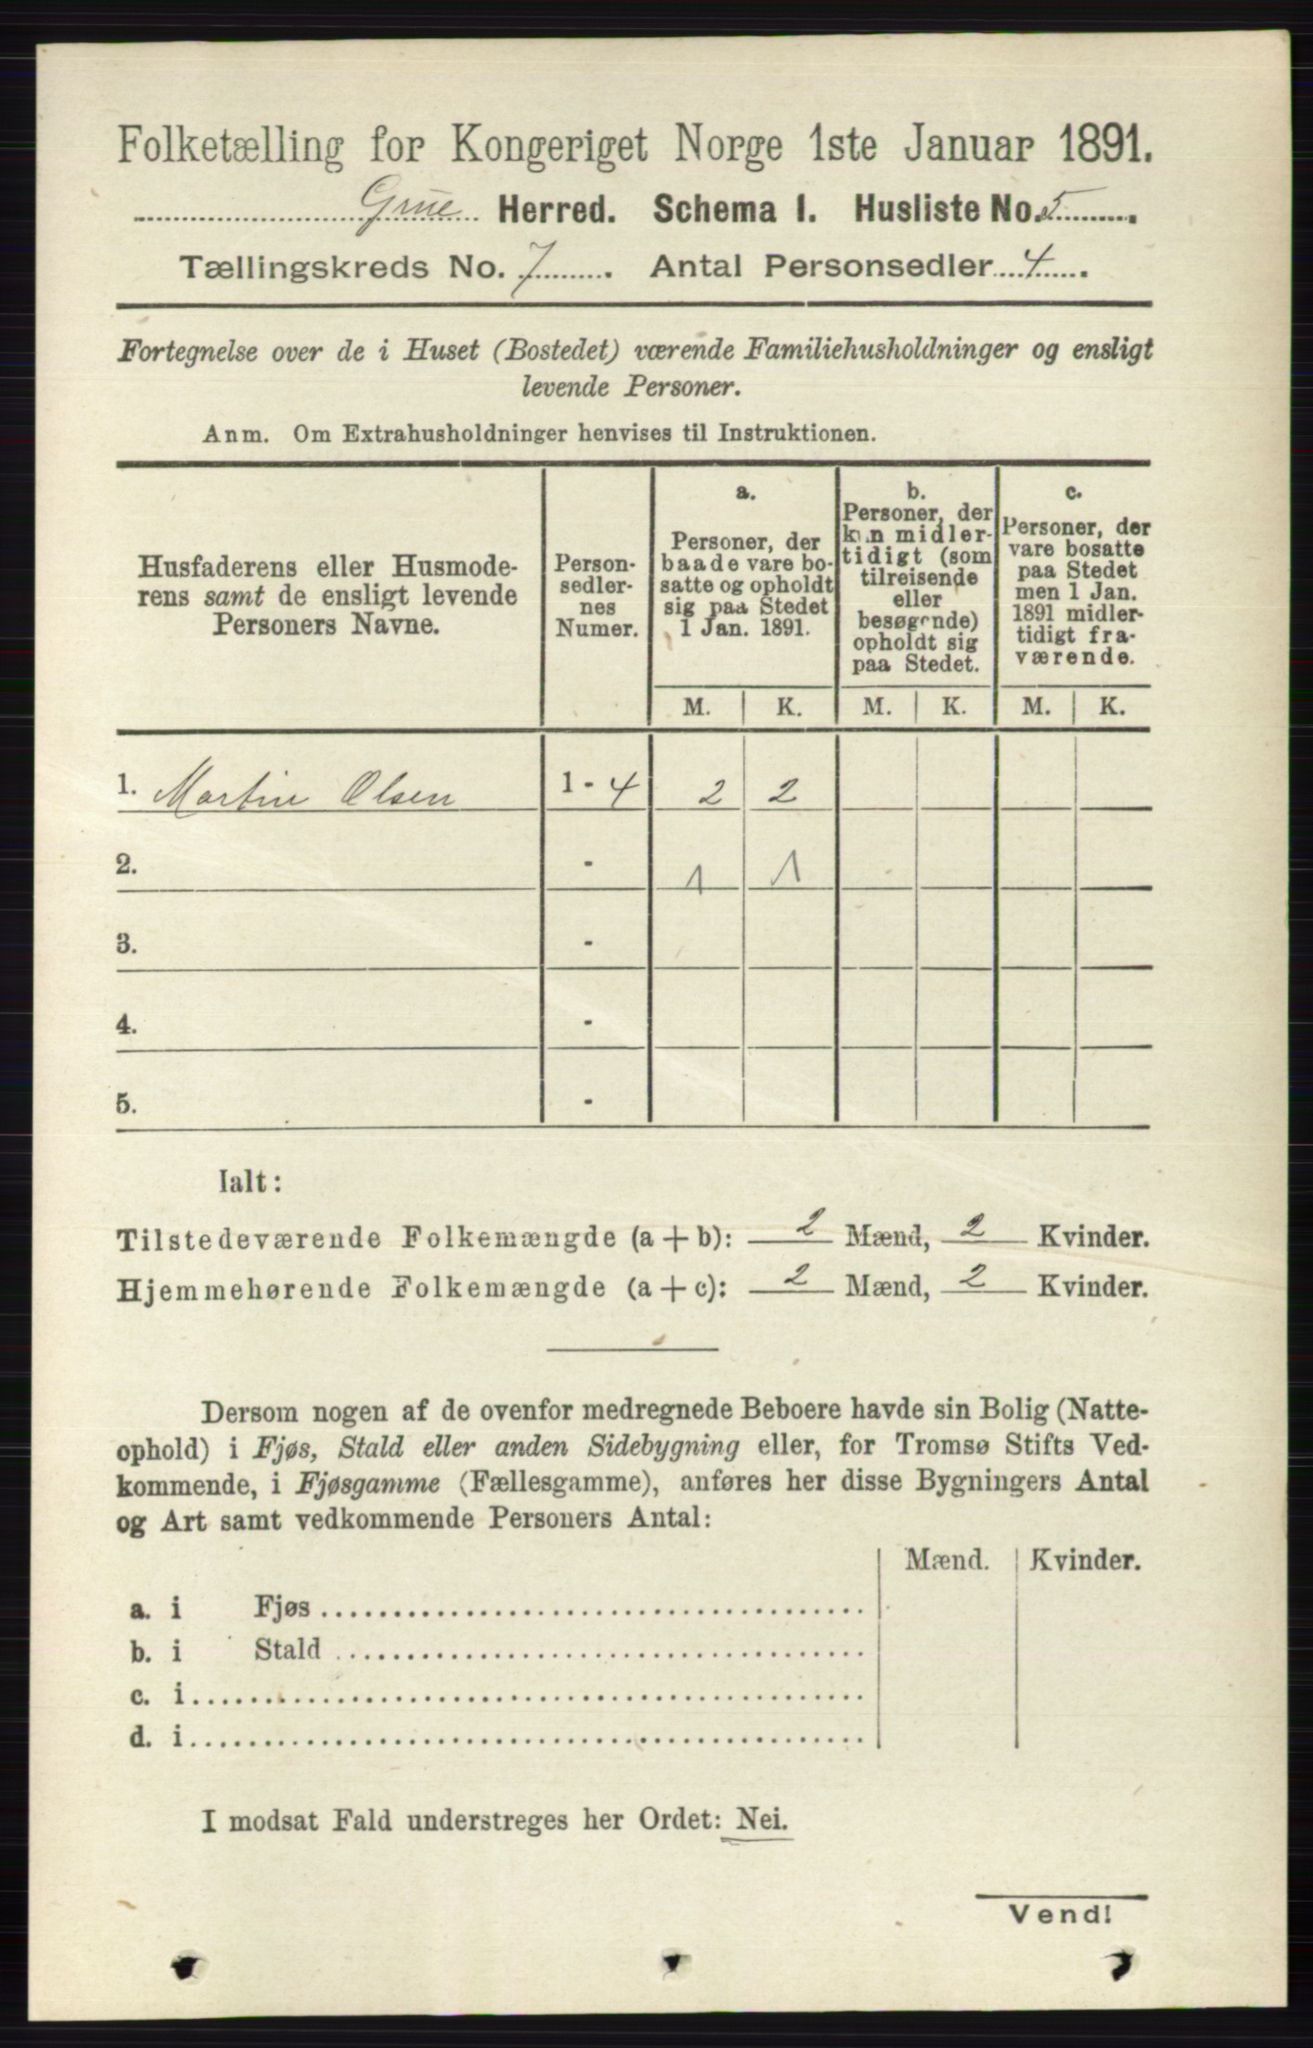 Folketælling for Kongeriget Norge 1ste Januar 1891.
Grue Herred. Schema I. Husliste No. 5
Tællingskreds No. 7. Antal Personsedler 4.
Fortegnelse over de i Huset (Bostedet) værende Familiehusholdninger og ensligt
levende Personer.
Anm. Om Extrahusholdninger henvises til Instruktionen.
Husfaderens eller Husmode-
rens samt de ensligt levende
Personers Navne.
Person-
sedler-
nes
Numer.
a.
Personer, der
baade vare bo-
satte og opholdt
sig paa Stedet
1 Jan. 1891.
b.
Personer, der
kun midler-
tidigt (som
tilreisende
eller
besøgende)
opholdt sig
paa Stedet.
c.
Personer, der
vare bosatte
paa Stedet
men 1 Jan.
1891 midler-
tidigt fra-
værende.
M. K. M. K. M. K.
1. Martin Olsen 1 - 4 2 2
2. - 1 1
3. -
4. -
5. -
Ialt:
Tilstedeværende Folkemængde (a + b): 2 Mænd, 2 Kvinder.
Hjemmehørende Folkemængde (a + c): 2 Mænd, 2 Kvinder.
Dersom nogen af de ovenfor medregnede Beboere havde sin Bolig (Natte-
ophold) i Fjøs, Stald eller anden Sidebygning eller, for Tromsø Stifts Ved-
kommende, i Fjøsgamme (Fællesgamme), anføres her disse Bygningers Antal
og Art samt vedkommende Personers Antal:
Mænd. Kvinder.
a. i Fjøs
b. i Stald
c. i
d. i
I modsat Fald understreges her Ordet: Nei.
Vend!